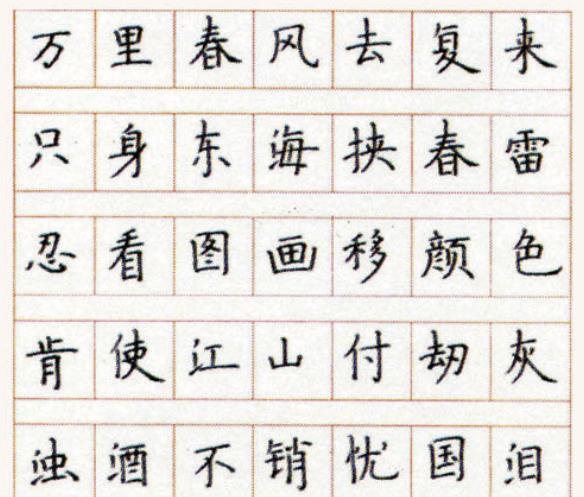 万里春风去复来
只身东海挟春雷
忍看图画移颜色
肯使江山付劫灰
浊酒不销忧国泪